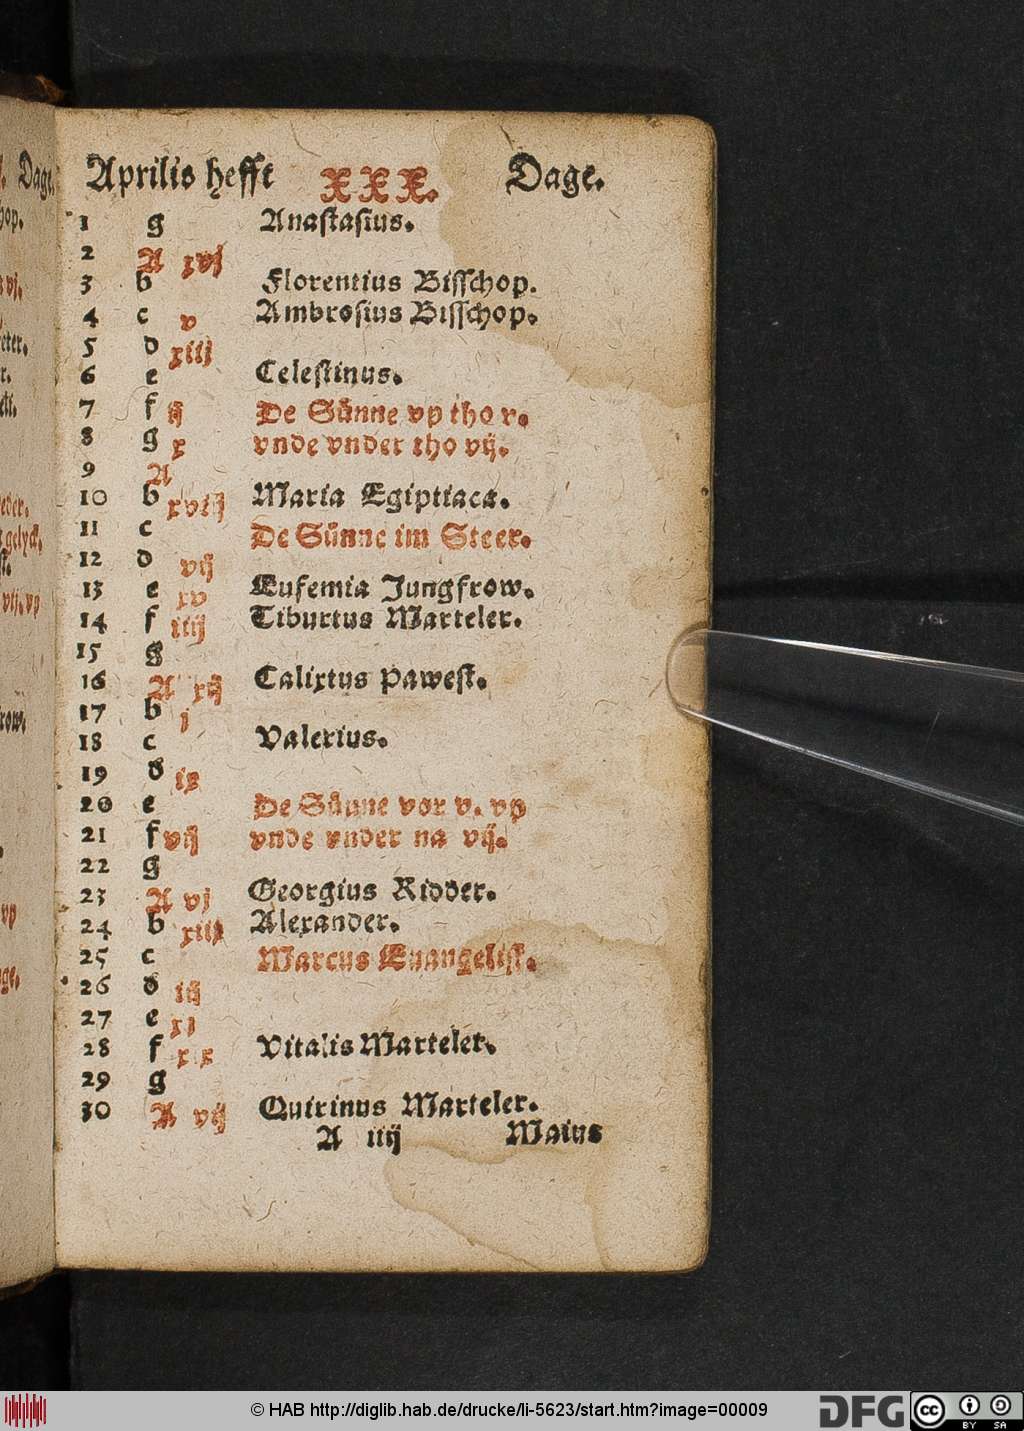 Aprilis hefft XXX. Dage.
1 g Anastasius.
2 A xvj
3 b Florentius Bisschop.
4 c v Ambrosius Bisschop.
5 d xiij
6 e Celestinus.
7 f ij De Sünne vp tho v.
8 g x vnde vnder tho vij.
9 A
10 b xviij Maria Egiptiaca.
11 c De Sünne im Steer.
12 d vij
13 e xv Eufemia Jungfrow.
14 f iiij Tiburtus Marteler.
15 g
16 A xij Calixtus Pawest.
17 b j
18 c Valerius.
19 d ix
20 e De Sünne vor v. vp
21 f vij vnde vnder na vij.
22 g
23 A vj Georgius Ridder.
24 b xiiij Alexander.
25 c Marcus Euangelist.
26 d iij
27 e xi
28 f xix Vitalis Marteler.
29 g
30 A vij Quirinus Marteler.
A iiij Maius
© HAB http://diglib.hab.de/drucke/li-5623/start.htm?image=00009
DFG
cc BY SA